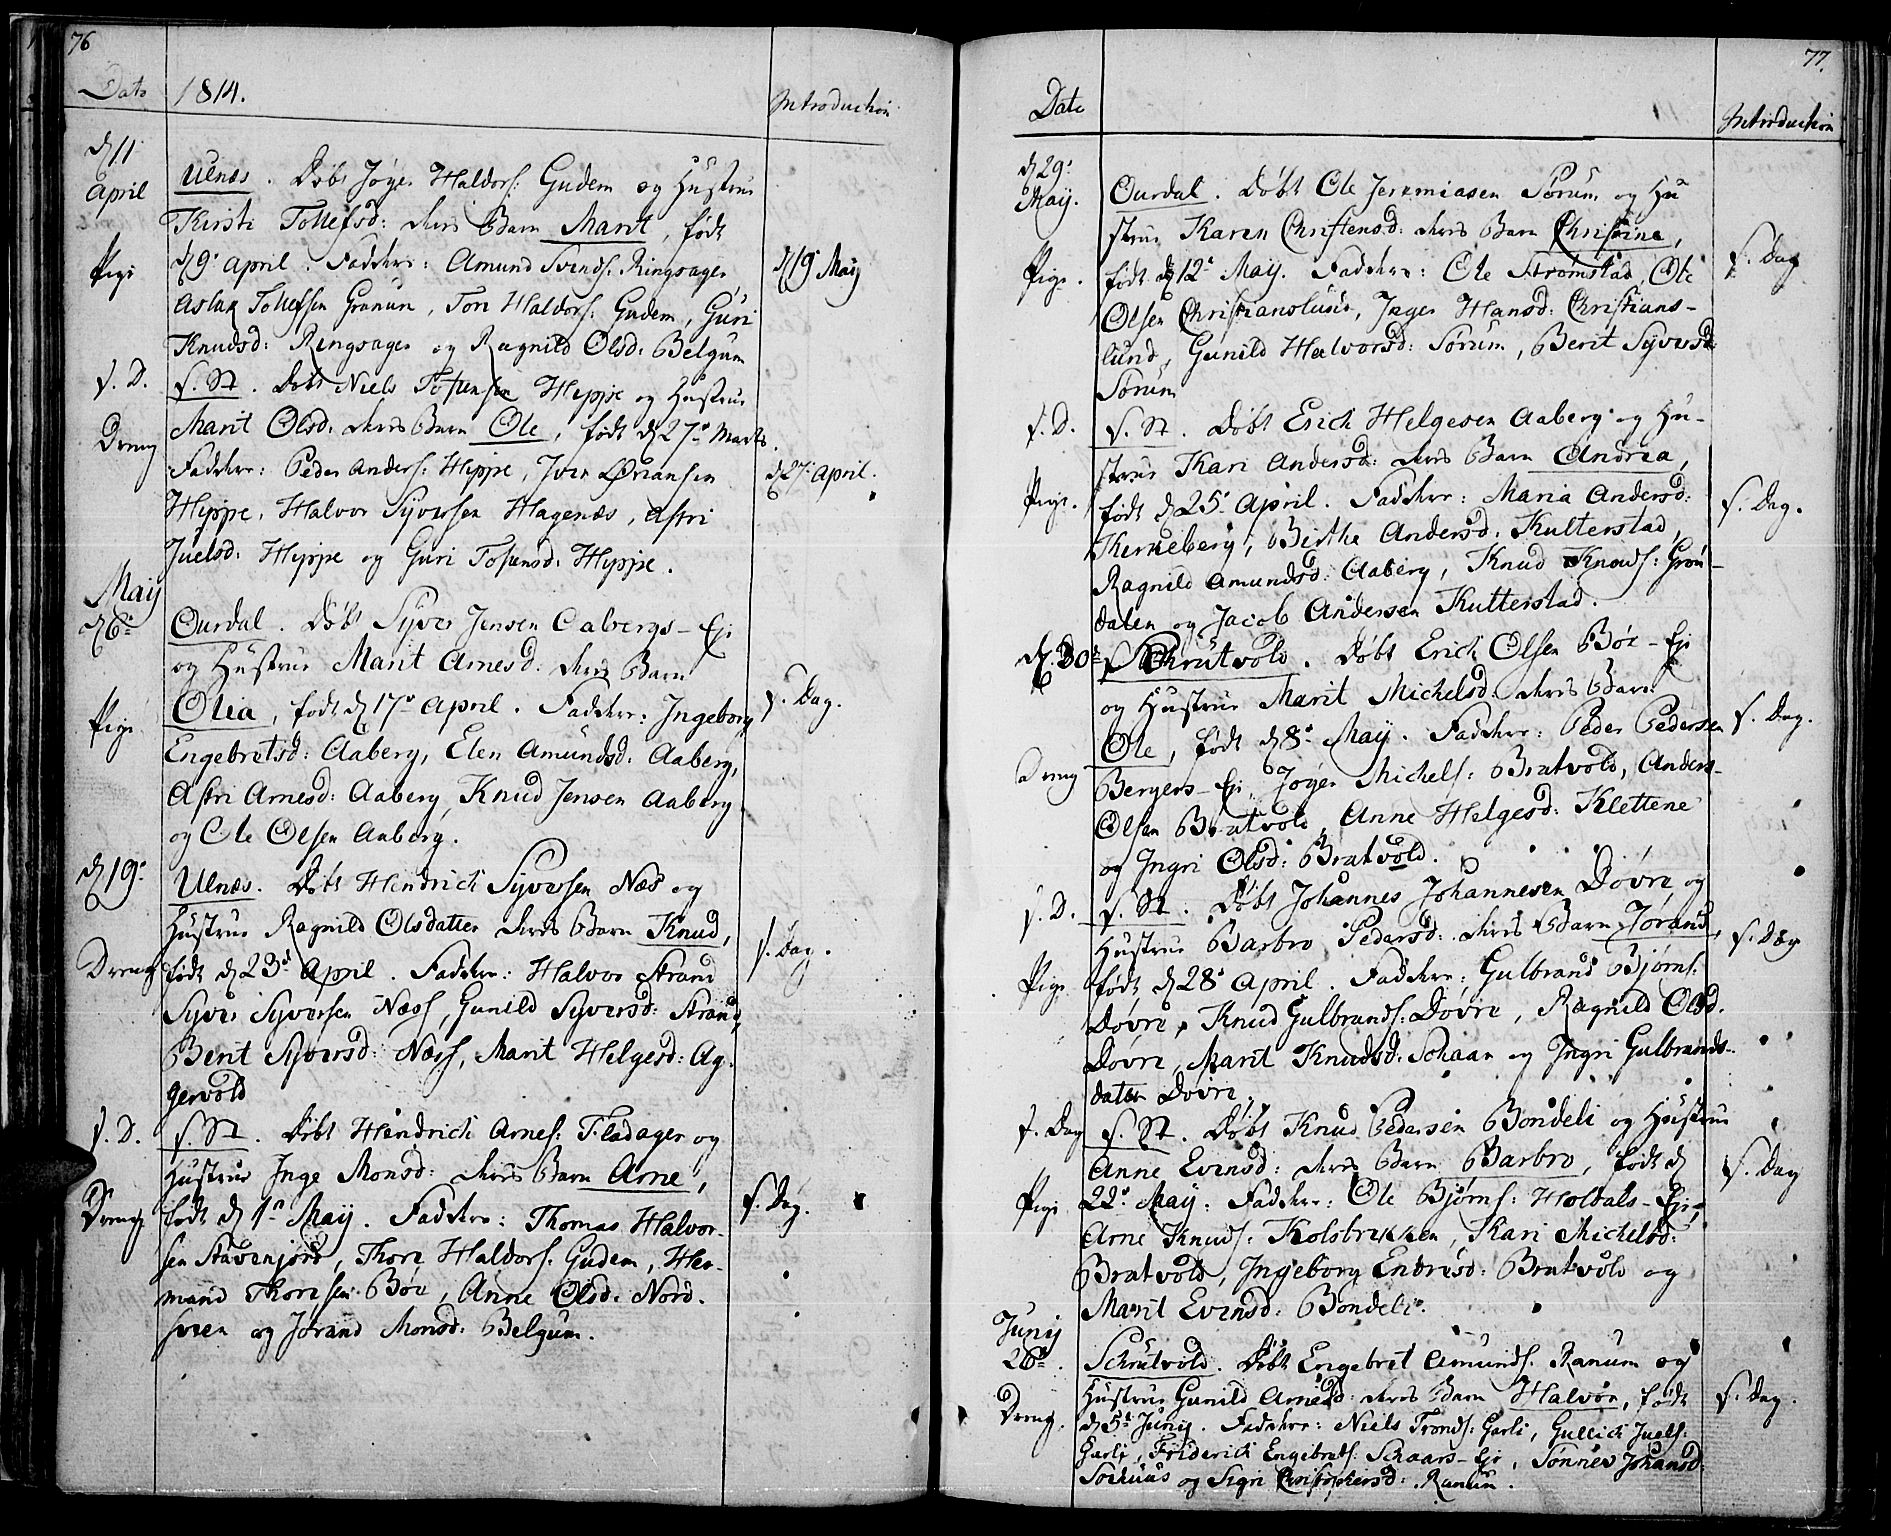 76
Dato 1814. Introduction
d 11 April Ulnæs. Døbt Jøger Haldors: Gudem og Hustrue
Kirsti Tollefsd: deres Barn Marit, født
Pige d 9de April. Faddere: Amund Svends: Ringsager, d 19de May
Aslak Tollefsen Granum, Tore Haldors: Gudem, Guri
Knudsd: Ringsager og Ragnild Olsd: Belgum
s. D. s. St. Døbt Niels Tostensen Hippe og Hustrue
Dreng Marit Olsd: deres Barn Ole, født d 27de Marts.
Faddere: Peder Anders: Hippe, Iver Øriansen d 27de April.
Hippe, Halvor Syversen Hagenæs, Astri
Juelsd: Hippe og Guri Tostensd: Hippe.
May
d 6te Ourdal. Døbt Syver Jensen Calvergs-Eje
og Hustrue Marit Arnesd: deres Barn
Pige Olia, født d 17de April. Faddere: Ingeborg s. Dag.
Engebretsd: Aaberg, Elen Amundsd: Aaberg,
Astri Arnesd: Aaberg, Knud Jensen Aaberg
og Ole Olsen Aaberg.
d 19de Ulnæs. Døbt Hendrich Syversen Næs og
Hustrue Ragnild Olsdatter deres Barn Knud,
Dreng født d 23d April. Faddere: Halvor Strand s. Dag.
Syver Syversen Næss, Gunild Syversd: Strand,
Berit Syversd: Næss, Marit Helgesd: Ag-
gervold
s. D. s. St. Døbt Hendrich Arnes: Fladager og
Hustrue Inge Monsd: deres Barn Arne,
Dreng født d 1ste May. Faddere: Thomas Halvor- s. Dag.
sen Stavenjord, Thore Haldors: Gudem, Her-
mand Thoresen Bøe, Anne Olsd: Nord-
sveen og Jørand Monsd: Belgum.
77.
Date Introduction
d 29de May. Ourdal. Døbt Ole Jeremiasen Sørum og Hu-
strue Karen Christensd: deres Barn Christine,
Pige. født d 12te May. Faddere: Ole Strømstad, Ole s. Dag
Olsen Christianslund, Inger Hansd: Christians-
lund, Gunild Halvorsd: Sørum, Berit Syversd:
Sørum
s. D. s. St. Døbt Erich Helgesen Aaberg og Hu-
strue Kari Andersd: deres Barn Andrea,
Pige. født d 25de April. Faddere: Maria Andersd: s. Dag.
Kerkeberg, Birthe Andersd: Kulterstad,
Ragnild Amundsd: Aaberg, Knud Knuds: Grøn-
dalen og Jacob Andersen Kutterstad.
d. 30te Schrutvold. Døbt Erich Olsen Bøe-Eje
og Hustrue Marit Michelsd: deres Barn
Ole, født d 8de May. Faddere: Peder Pedersen s. Dag.
Dreng Bergers-Eje, Jøger Michels: Bratvold, Anders
Olsen Bratvold, Anne Helgesd: Klettene
og Ingri Olsd: Bratvold.
s. D. s. St. Døbt Johannes Johannesen Døvre og
Hustrue Barbro Pedersd: deres Barn Jørand, s. Dag
Pige født d 28de April. Faddere: Gulbrand Bjørns:
Døvre, Knud Gulbrands: Døvre, Ragnild Olsd:
Døvre, Marit Knudsd: Schaar og Ingri Gulbrands-
datter Døvre.
s. Dag s. St. Døbt Knud Pedersen Bondeli og Hustrue
Anne Evensd: deres Barn Barbro, født d s. Dag
Pige 22de May. Faddere: Ole Bjørns: Holdals-Eje,
Arne Knuds: Kolsbrekken, Kari Michelsd:
Bratvold, Ingeborg Endresd: Bratvold og
Marit Evensd: Bondeli.
Junij
26de. Schrutvold. Døbt Engebret Amunds: Ranum og
Hustrue Gunild Arnesd: deres Barn Halvor, født s. Dag.
Dreng. d 5te Junij. Faddere: Niels Tronds: Garli, Gullich Juels:
Garli, Friderich Engebrets: Schaars-Eje, Tønnes Johansd:
Soehuus og Sigri Christophersd: Ranum.